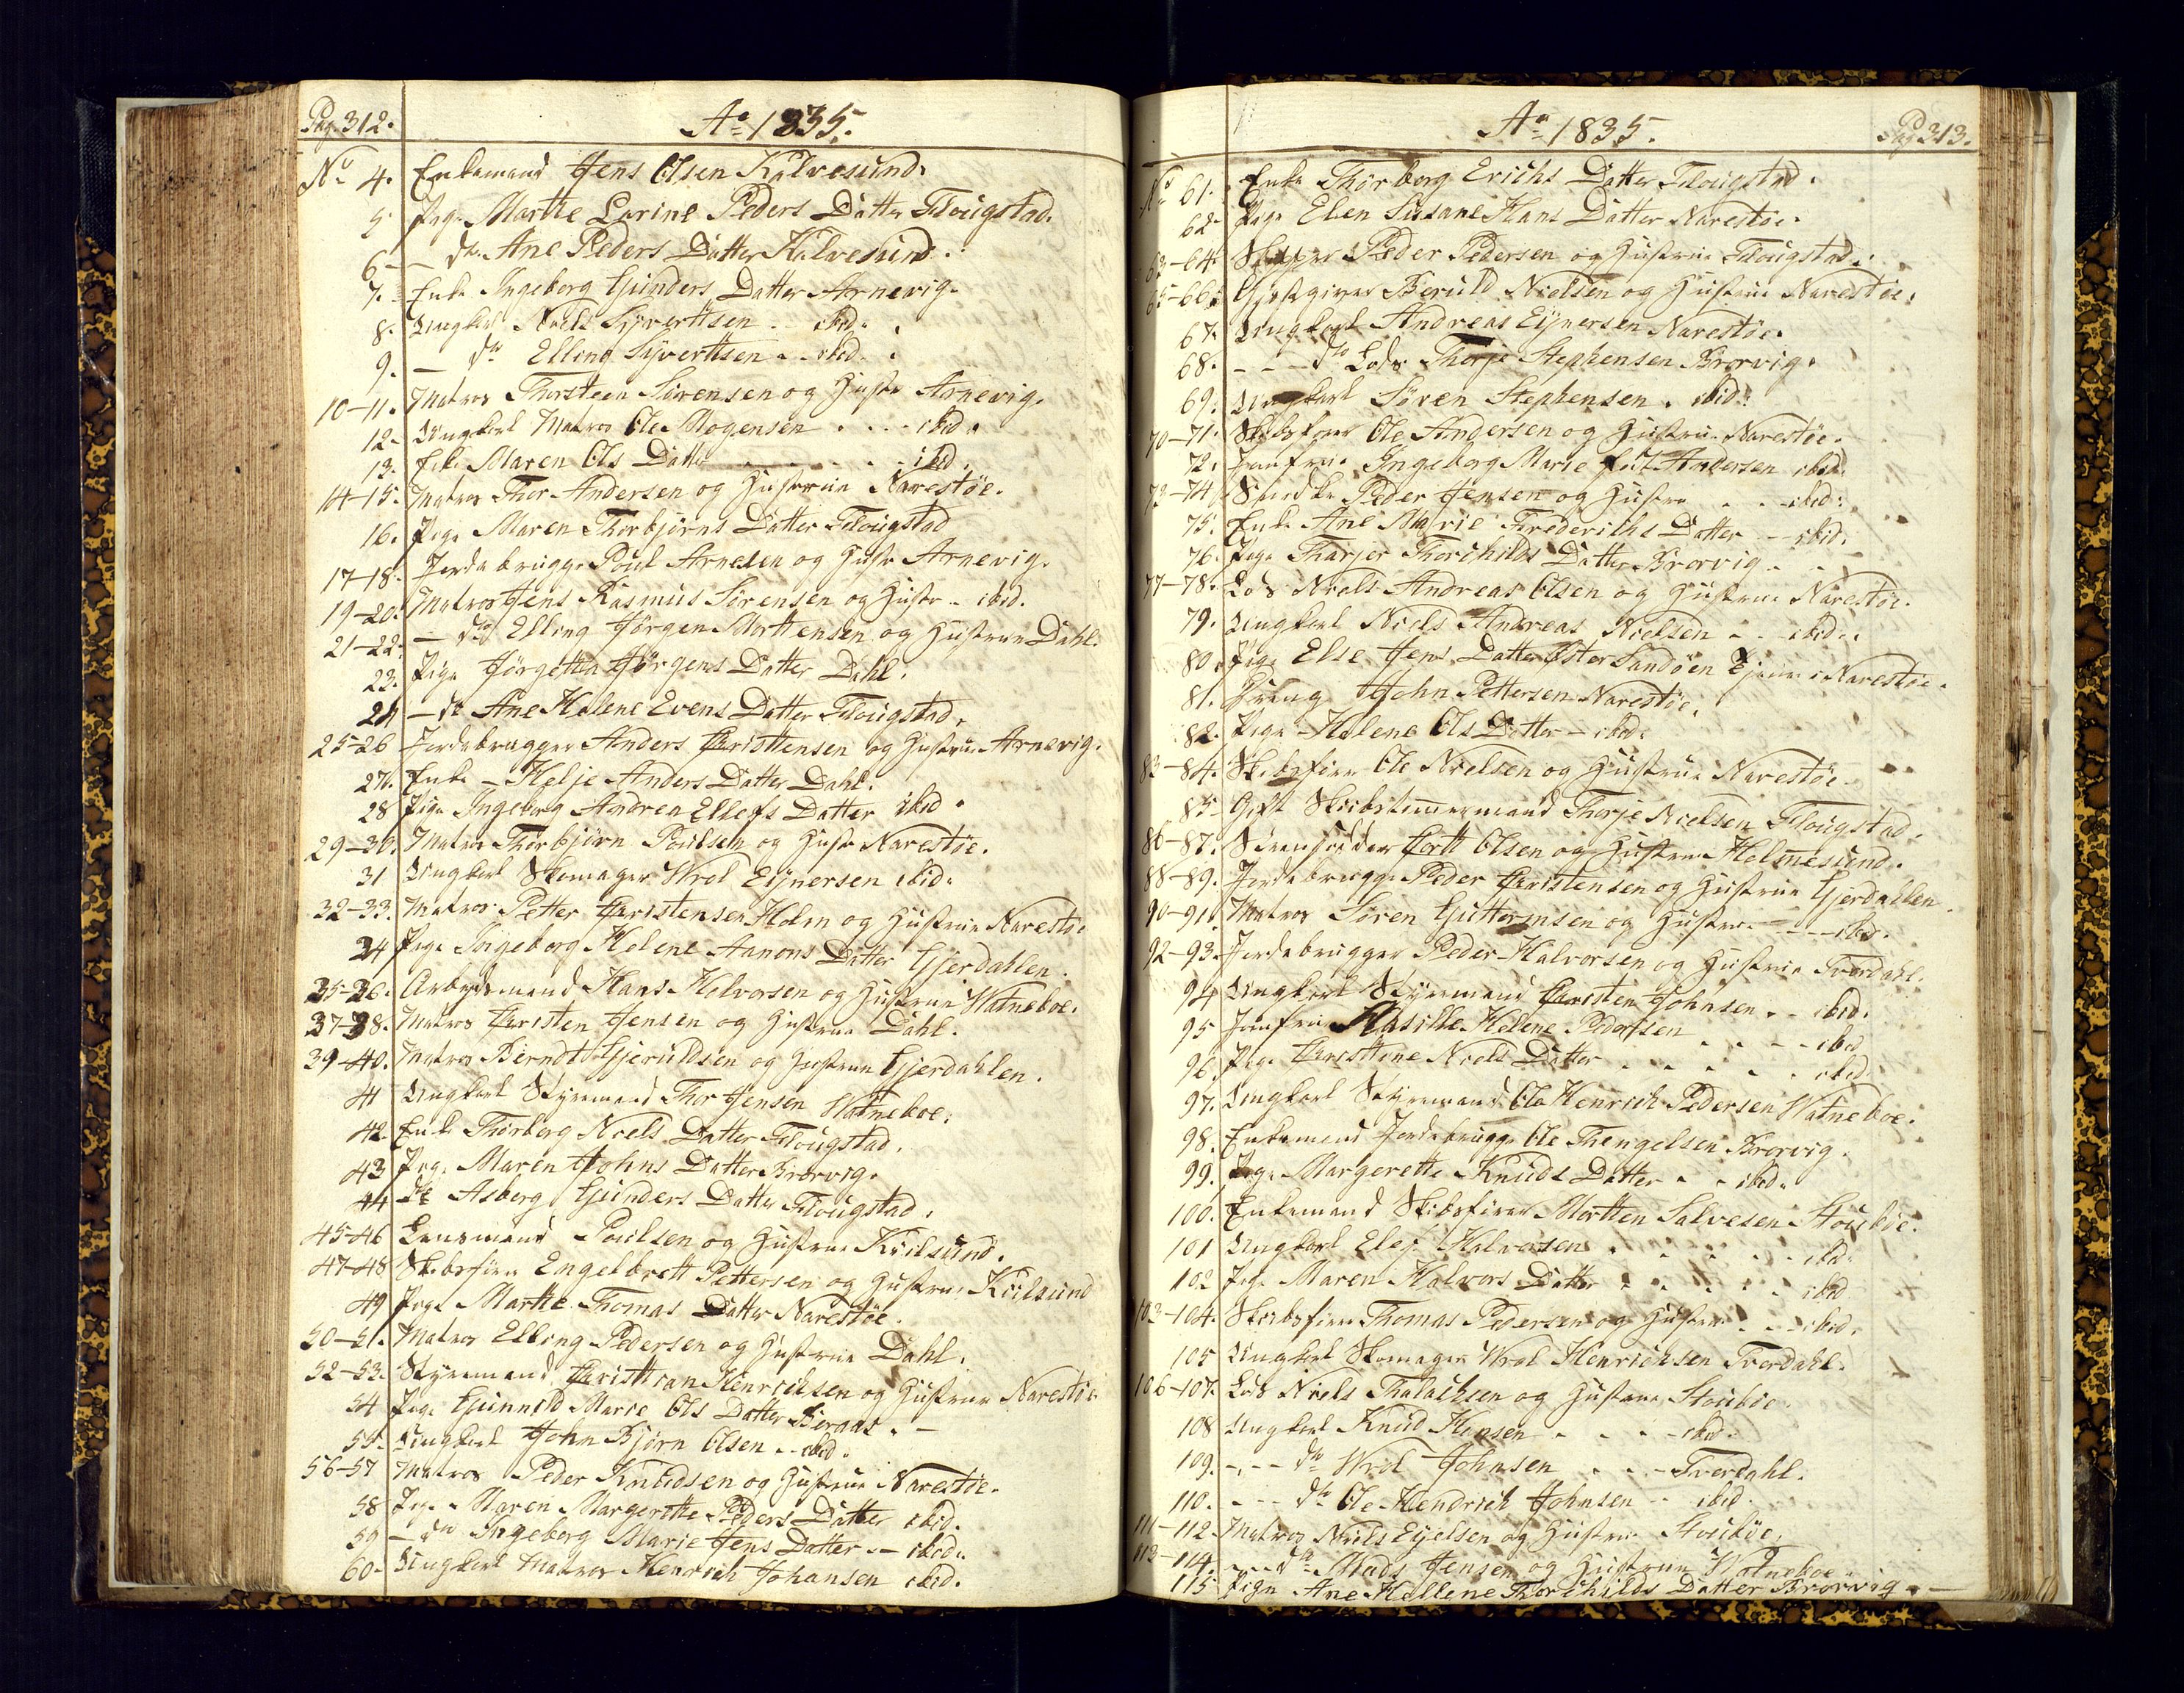 Pag. 312.
Ao 1835.
No 4. Enkemand Jens Olsen Kalvesund.
5 Pige Marthe Lorine Peders Datter Flougstad.
6 - do Ane Peders Datter Kalvesund.
7. Enke Ingeborg Gunders Datter Arnevig.
8. Ungkarl Niels Syvertsen . ibid.
9. - do Elling Syvertsen . . ibid.
10-11. Matros Thorsteen Sörensen og Hustr Arnevig.
12. Ungkarl Matros Ole Mogensen . . . ibid.
13. Enke Maren Ols Datter . . . ibid.
14-15. Matros Thor Andersen og Hustrue Narestöe.
16. Pige Maren Thorbjörns Datter Flougstad
17-18. Jordebrugge Poul Arnesen og Hustr Arnevig.
19-20. Matros Jens Rasmus Sörensen og Hustr .. ibid.
21-22. - do Elling Jörgen Mortensen og Hustrue Dahl.
23. Pige Jörgetha Jörgens Datter Dahl.
24 - do Ane Helene Evens Datter Flougstad.
25-26 Jordebrugger Anders Christensen og Hustrue Arnevig.
27. Enke - Helje Anders Datter Dahl.
28 Pige Ingeborg Andrea Ellefs Datter ibid.
29-30. Matros Thorbjörn Poulsen og Hustr Narestöe.
31 Ungkarl Skomager Wrol Eynersen ibid.
32-33. Matros Petter Christensen Holm og Hustrue Narestöe
34 Pige Ingeborg Helene Aanons Datter Gjerdahlen.
35-36. Arbeydsmand Hans Halvorsen og Hustrue Watneboe.
37-38. Matros Christen Jensen og Hustrue Dahl.
39-40. Matros Berndt Gjeruldsen og Hustrue Gjerdahlen.
41 Ungkarl Styrmand Thor Jensen Watneboe.
42. Enke Thorberg Niels Datter Flougstad.
43 Pige Maren Johns Datter Brorvig.
44 do Asberg Gunders Datter Flougstad.
45-46 Lensmand Poulsen og Hustrue Kiilsund.
47-48 Skibsförer Engelbrett Pettersen og Hustrue Kiilsund
49 Pige Marthe Thomas Datter Narestöe.
50-51. Matros Elling Pedersen og Hustrue Dahl.
52-53. Styrmand Christian Henrichsen og Hustrue Narestöe
54 Pige Gunnild Marie Ols Datter Boraas. -
55. Ungkarl John Björn Olsen .. ibid.
56-57 Matros Peder Knudsen og Hustrue Narestöe.
58 Pige Maren Margerethe Peders Datter ibid.
59 - do Ingeborg Marie Jens Datter .- ibid.
60. Ungkarl Matros Henrich Johansen ibid.
Ao 1835.
Pag 313.
No 61. Enke Thorborg Erichs Datter Flougstad.
62. Pige Elen Susane Hans Datter Narestöe.
63-64. Skipper Peder Pedersen og Hustrue Flougstad.
65-66. Gjestgiver Beruld Nielsen og Hustrue Narestöe.
67. Ungkarl Andreas Eynersen Narestöe.
68. - - - do Lods Thorje Stephensen Brorvig.
69. Ungkarl Sören Stephensen . ibid.
70-71. Skibsförer Ole Andersen og Hustrue Narestöe.
72. Jomfrue Ingeborg Marie Andersen ibid.
73-74. Peder Jensen og Hustrue . . ibid.
75. Enke Ane Marie Frederichs Datter - ibid.
76. Pige Tharjer Thorchilds Datter Brorvig . .
77-78. Lods Niels Andreas Olsen og Hustrue Narestöe.
79. Ungkarl Niels Andreas Nielsen . . ibid.
80. Pige Else Jens Datter Öster Sandöen Narestöe.
81. John Pettersen Narestöe.
82. Pige - Helene Ols Datter - ibid.
83-84. Skibsförer Ole Nielsen og Hustrue Narestöe.
85 Gift Skibstömmermand Thorje Nielsen Flougstad.
86-87. Cortt Olsen og Hustrue Holmesund.
88-89. Jordebrugge Peder Christensen og Hustrue Gjerdahlen.
90-91. Matros Sören Guttormsen og Hustrue - - - ibid.
92-93. Jordebrugger Peder Halvorsen og Hustrue Tverdahl.
94 Ungkarl Styrmand Christen Johnsen . . ibid.
95 Jomfrue Helene Pedersen . . - - ibid
96. Pige Christine Niels Datter . . . . ibid.
97. Ungkarl Styrmand Ole Henrich Pedersen Watneboe.
98. Enkemand Jordebrugge Ole Thengelsen Brorvig.
99. Pige Margerette Knuds Datter . . ibid.
100. Enkemand Skibsförer Mortten Salvesen Stouböe.
101 Ungkarl Elej Halvorsen . . . . ibid.
102 Pige Maren Halvors Datter . . . . ibid
103-104. Skibsförer Thomas Pedersen og Hustrue . . . ibid.
105 Ungkarl Skomager Wrol Henrichsen Tverdahl.
106-107. Lods Niels Thalachsen og Hustrue Stouböe.
108 Ungkarl Knud Hansen . . . . ibid.
109. - . - - do Wrol Johnsen . . . - Tverdahl.
110. - - - do Ole Hendrich Johnsen - ibid.
111-112 Matros Niels Eyelsen og Hustrue Stouböe.
113-114. - - - do Mads Jensen og Hustrue Watneboe.
115 Pige Ane Hellene Thorchilds Datter Brorvig. -